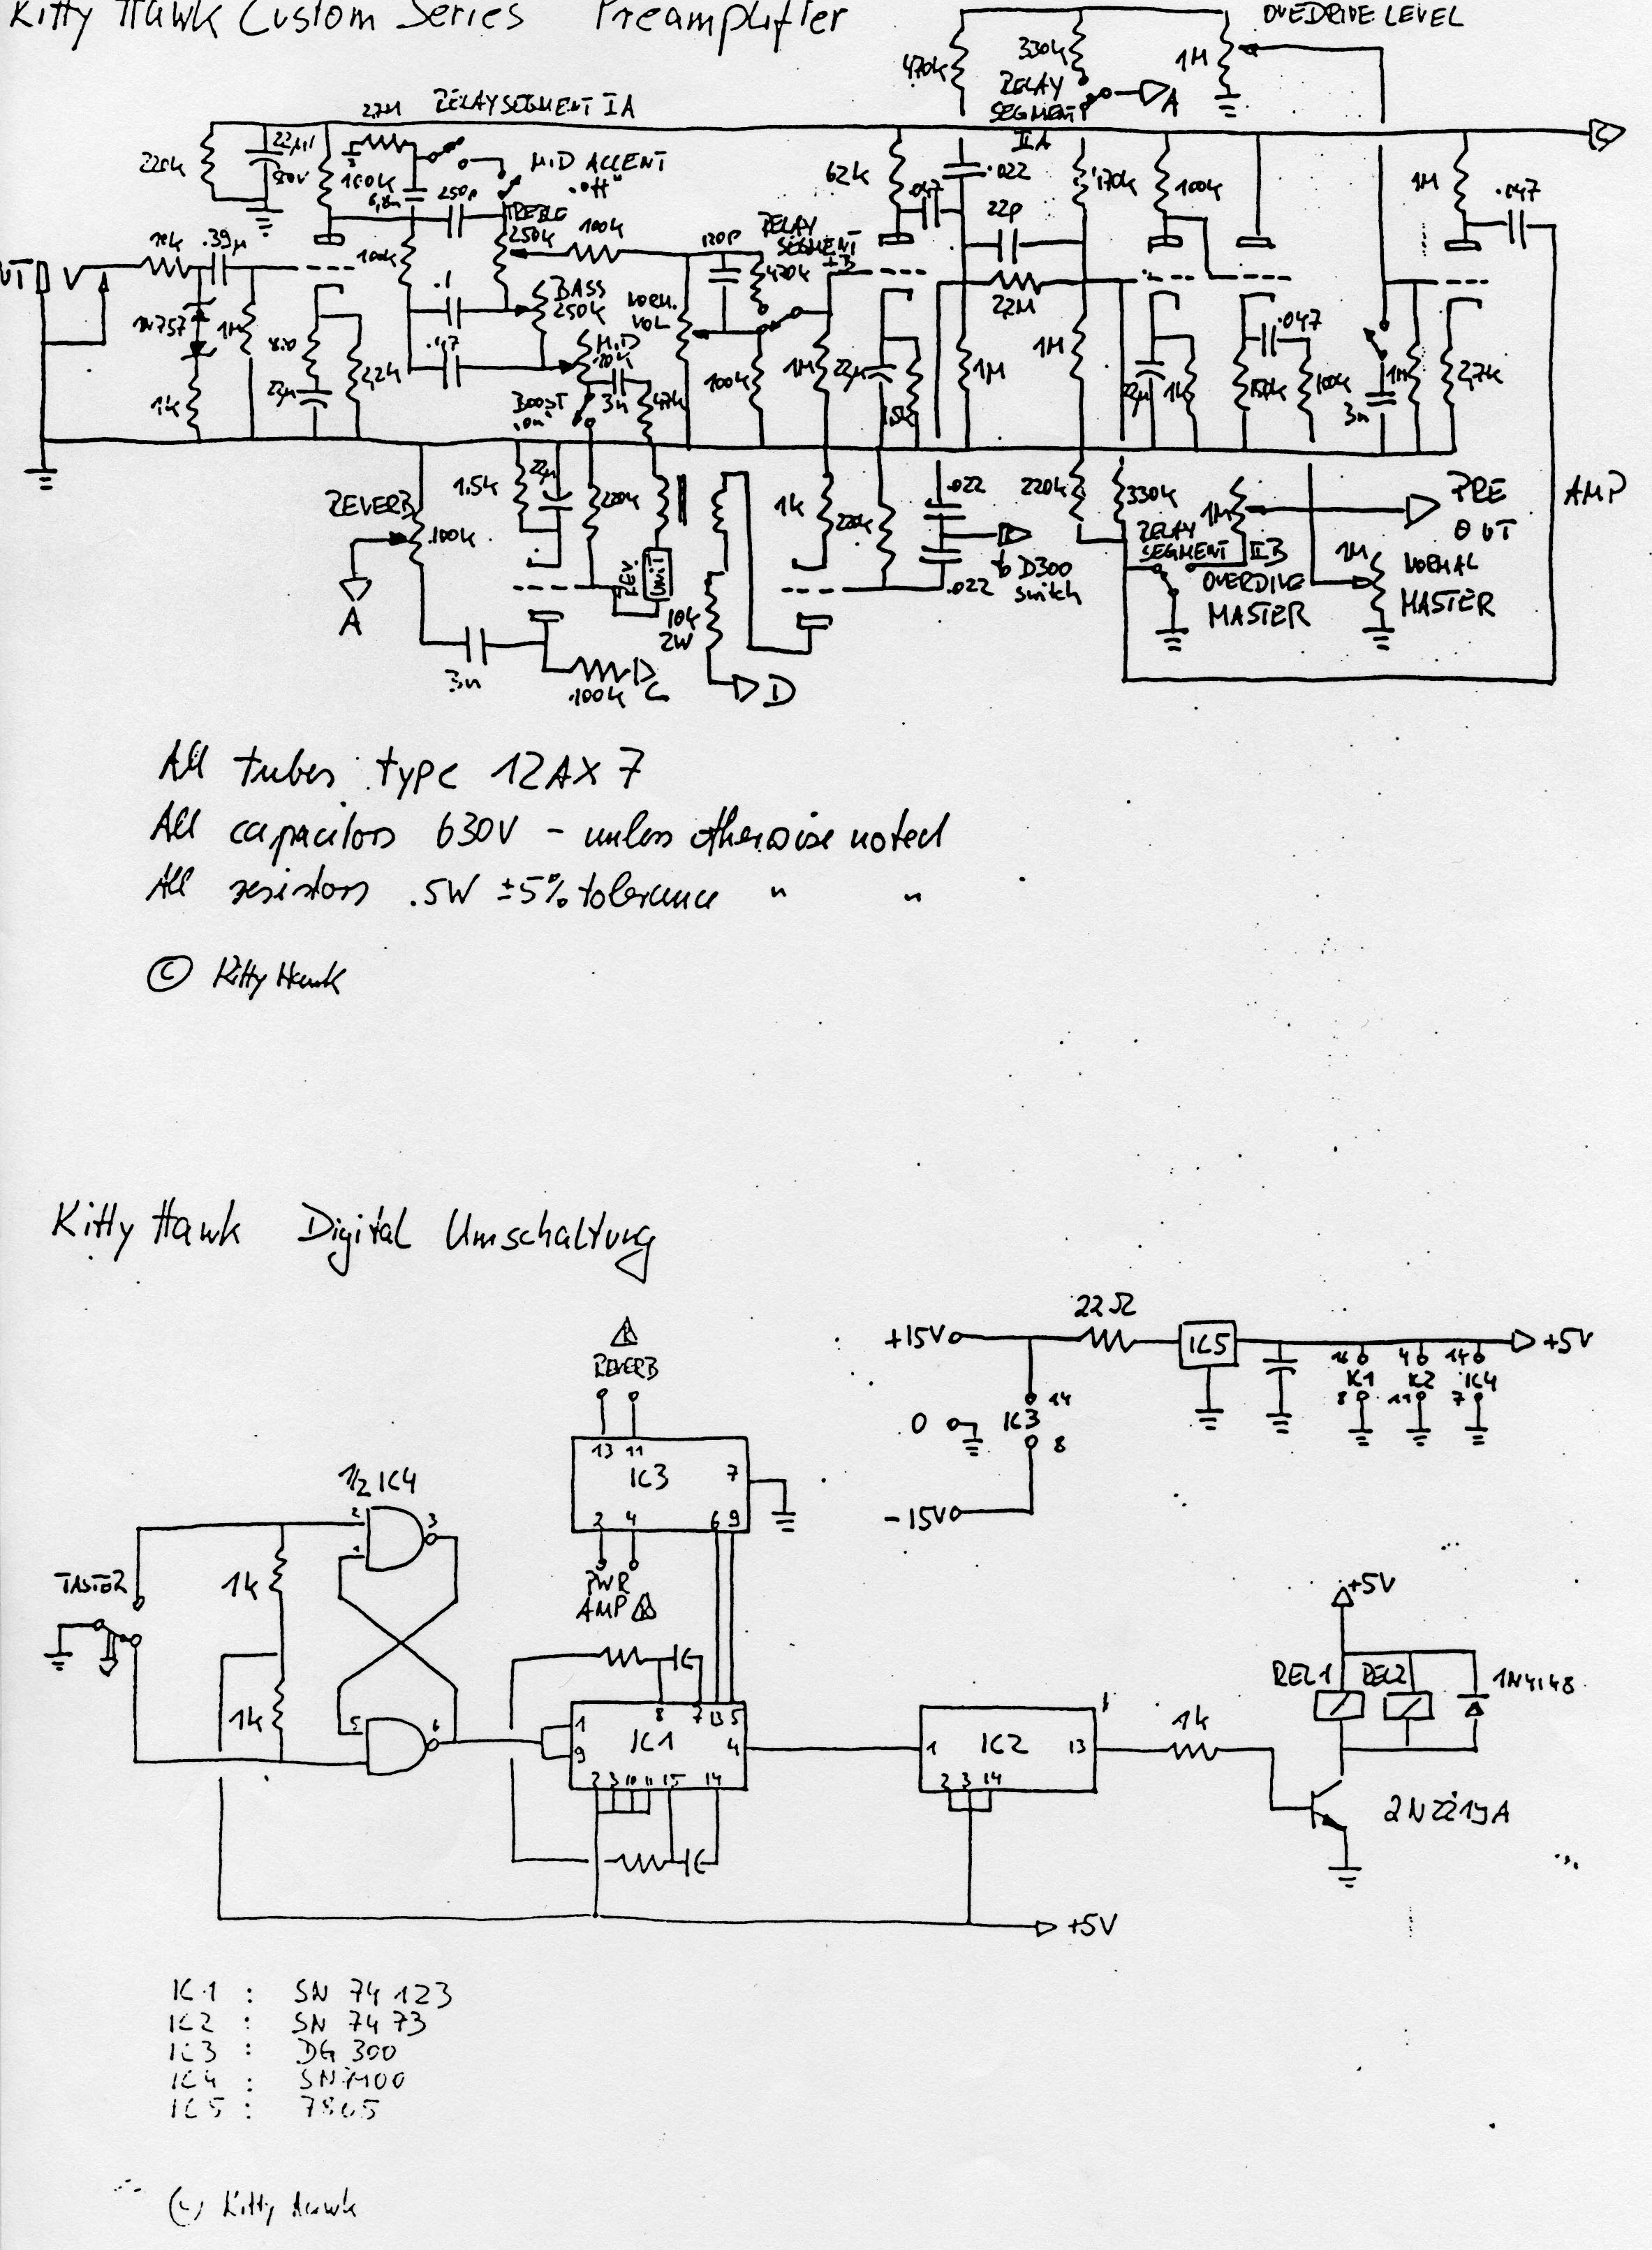 Kitty Hawk Custom Series Preamplifier
OVEDRIVE LEVEL
470k
330k
1M
RELAY
SEGMENT
II A
A
2,2M
RELAY SEGMENT I A
220k
22µ
100k
250p
MID ACCENT
"off"
TREBLE
250k
100k
120p
RELAY
SEGMENT
470k
62k
.047
.022
22p
100k
1M
.047
C
UT
.39µ
100k
.1
BASS
250k
NORM.
VOL
22µ
2,2M
1M
.047
1N757
1M
22µ
2,2k
1k
.47
MID
BOOST
"on"
3n
47k
100k
1M
22µ
1M
1k
150k
100k
1M
3n
2,7k
REVERB
100k
A
1.5k
22µ
220k
REV.
Unit
10k
2W
1k
220k
.022
.022
to D300
switch
220k
330k
RELAY
SEGMENT II B
1M
OVERDIVE
MASTER
PRE
OUT
1M
NORMAL
MASTER
AMP
3n
100k
C
D
All tubes type 12AX7
All capacitors 630V - unless otherwise noted
All resistors .5W ±5% tolerance " "
© Kitty Hawk
Kitty Hawk Digital Umschaltung
+15V
22Ω
IC5
+5V
16 4 14
IC1 IC2 IC4
8 11 7
0
IC3
14
8
-15V
REVERB
13 11
IC3
7
2 4 6 9
PWR
AMP
1/2 IC4
2
1
3
TASTER
1k
1k
5
6
8 7 13 5
1
9
IC1
4
2 3 10 11 15 14
1
IC2
13
2 3 14
1k
+5V
REL1
REL2
1N4148
2N2219A
+5V
IC1 : SN 74123
IC2 : SN 7473
IC3 : DG 300
IC4 : SN 7400
IC5 : 7805
(c) Kitty Hawk